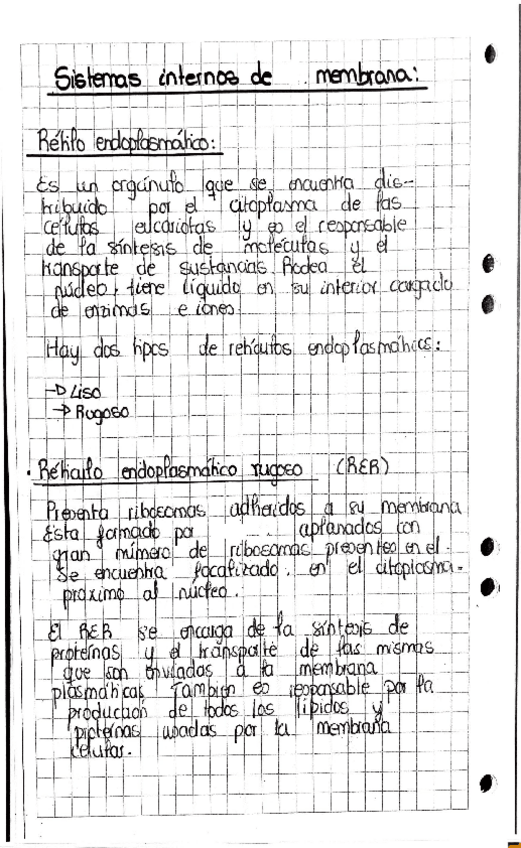 Sistemas internos de membrana:
Retílo endoplasmático:
Es un orgánulo que se encuentra dis-
tribuido por el citoplasma de las
células eucariotas y es el responsable
de la síntesis de moléculas y el
transporte de sustancias Rodea el
núcleo, tiene líquido en su interior cargado
de enzimas e iones.
Hay dos tipos de retículos endoplasmáticos:
→ Liso
→ Rugoso
· Retículo endoplasmático rugoso (RER)
Presenta ribosomas adheridos a su membrana
Esta formado por aplanados con
gran número de ribosomas presentes en el.
Se encuentra localizado. en el citoplasma.
próximo al núcleo.
El RER se encarga de la síntesis de
proteínas y el transporte de las mismas
que son enviadas a la membrana
plasmática También es responsable por la
producción de todos los lípidos y
proteínas usadas por la membrana
celular.